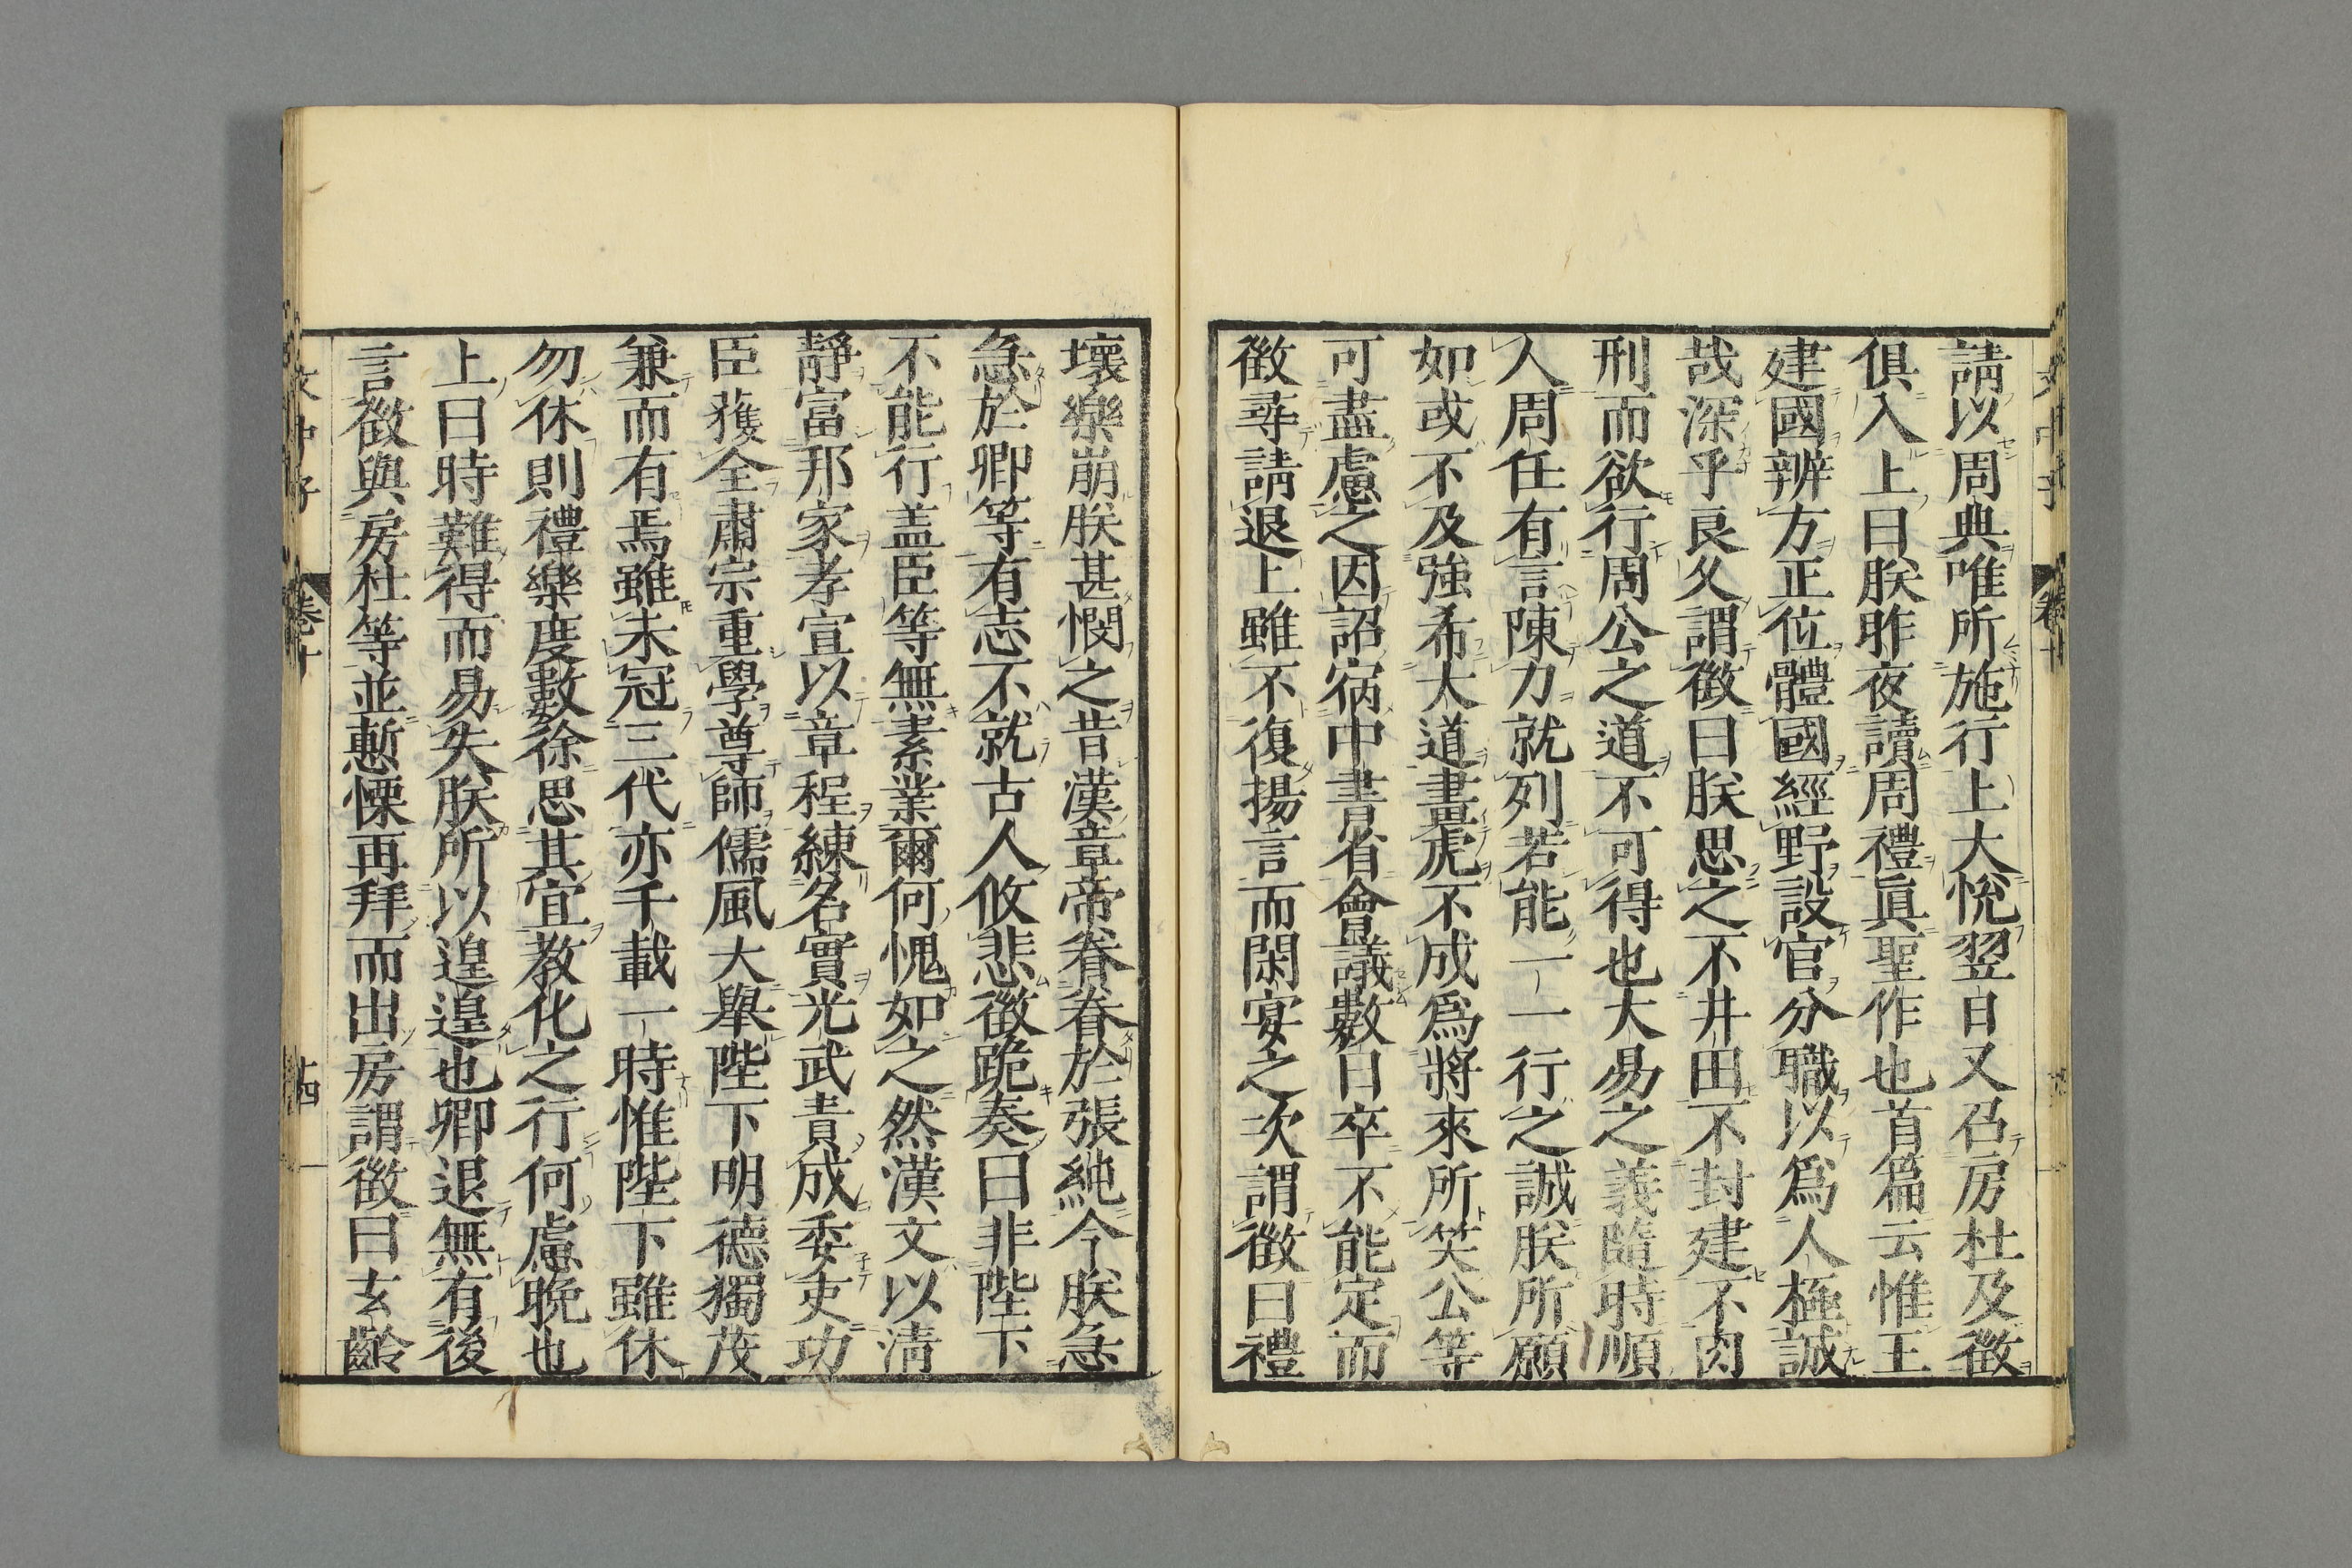 請以周典唯所施行上大悅翌日又召房杜及徵
俱入上曰朕昨夜讀周禮眞聖作也首篇云惟王
建國辨方正位體國經野設官分職以爲人極誠
哉深乎良久謂徵曰朕思之不井田不封建不肉
刑而欲行周公之道不可得也大易之義隨時順
人周任有言陳力就列若能一一行之誠朕所願
如或不及強希大道畫虎不成爲將來所笑公等
可盡慮之因詔宿中書省會議數日卒不能定而
徵尋請退上雖不復揚言而閑宴之次謂徵曰禮
壞樂崩朕甚憫之昔漢章帝眷眷於張純今朕急
急於卿等有志不就古人攸悲徵跪奏曰非陛下
不能行盖臣等無素業爾何愧如之然漢文以淸
靜富邦家孝宣以章程練名實光武責成委吏功
臣獲全肅宗重學尊師儒風大舉陛下明德獨茂
兼而有焉雖未冠三代亦千載一時惟陛下雖休
勿休則禮樂度數徐思其宜教化之行何慮晚也
上曰時難得而易失朕所以遑遑也卿退無有後
言徵與房杜等並慙慄再拜而出房謂徵曰玄齡
文中子 卷十 十四